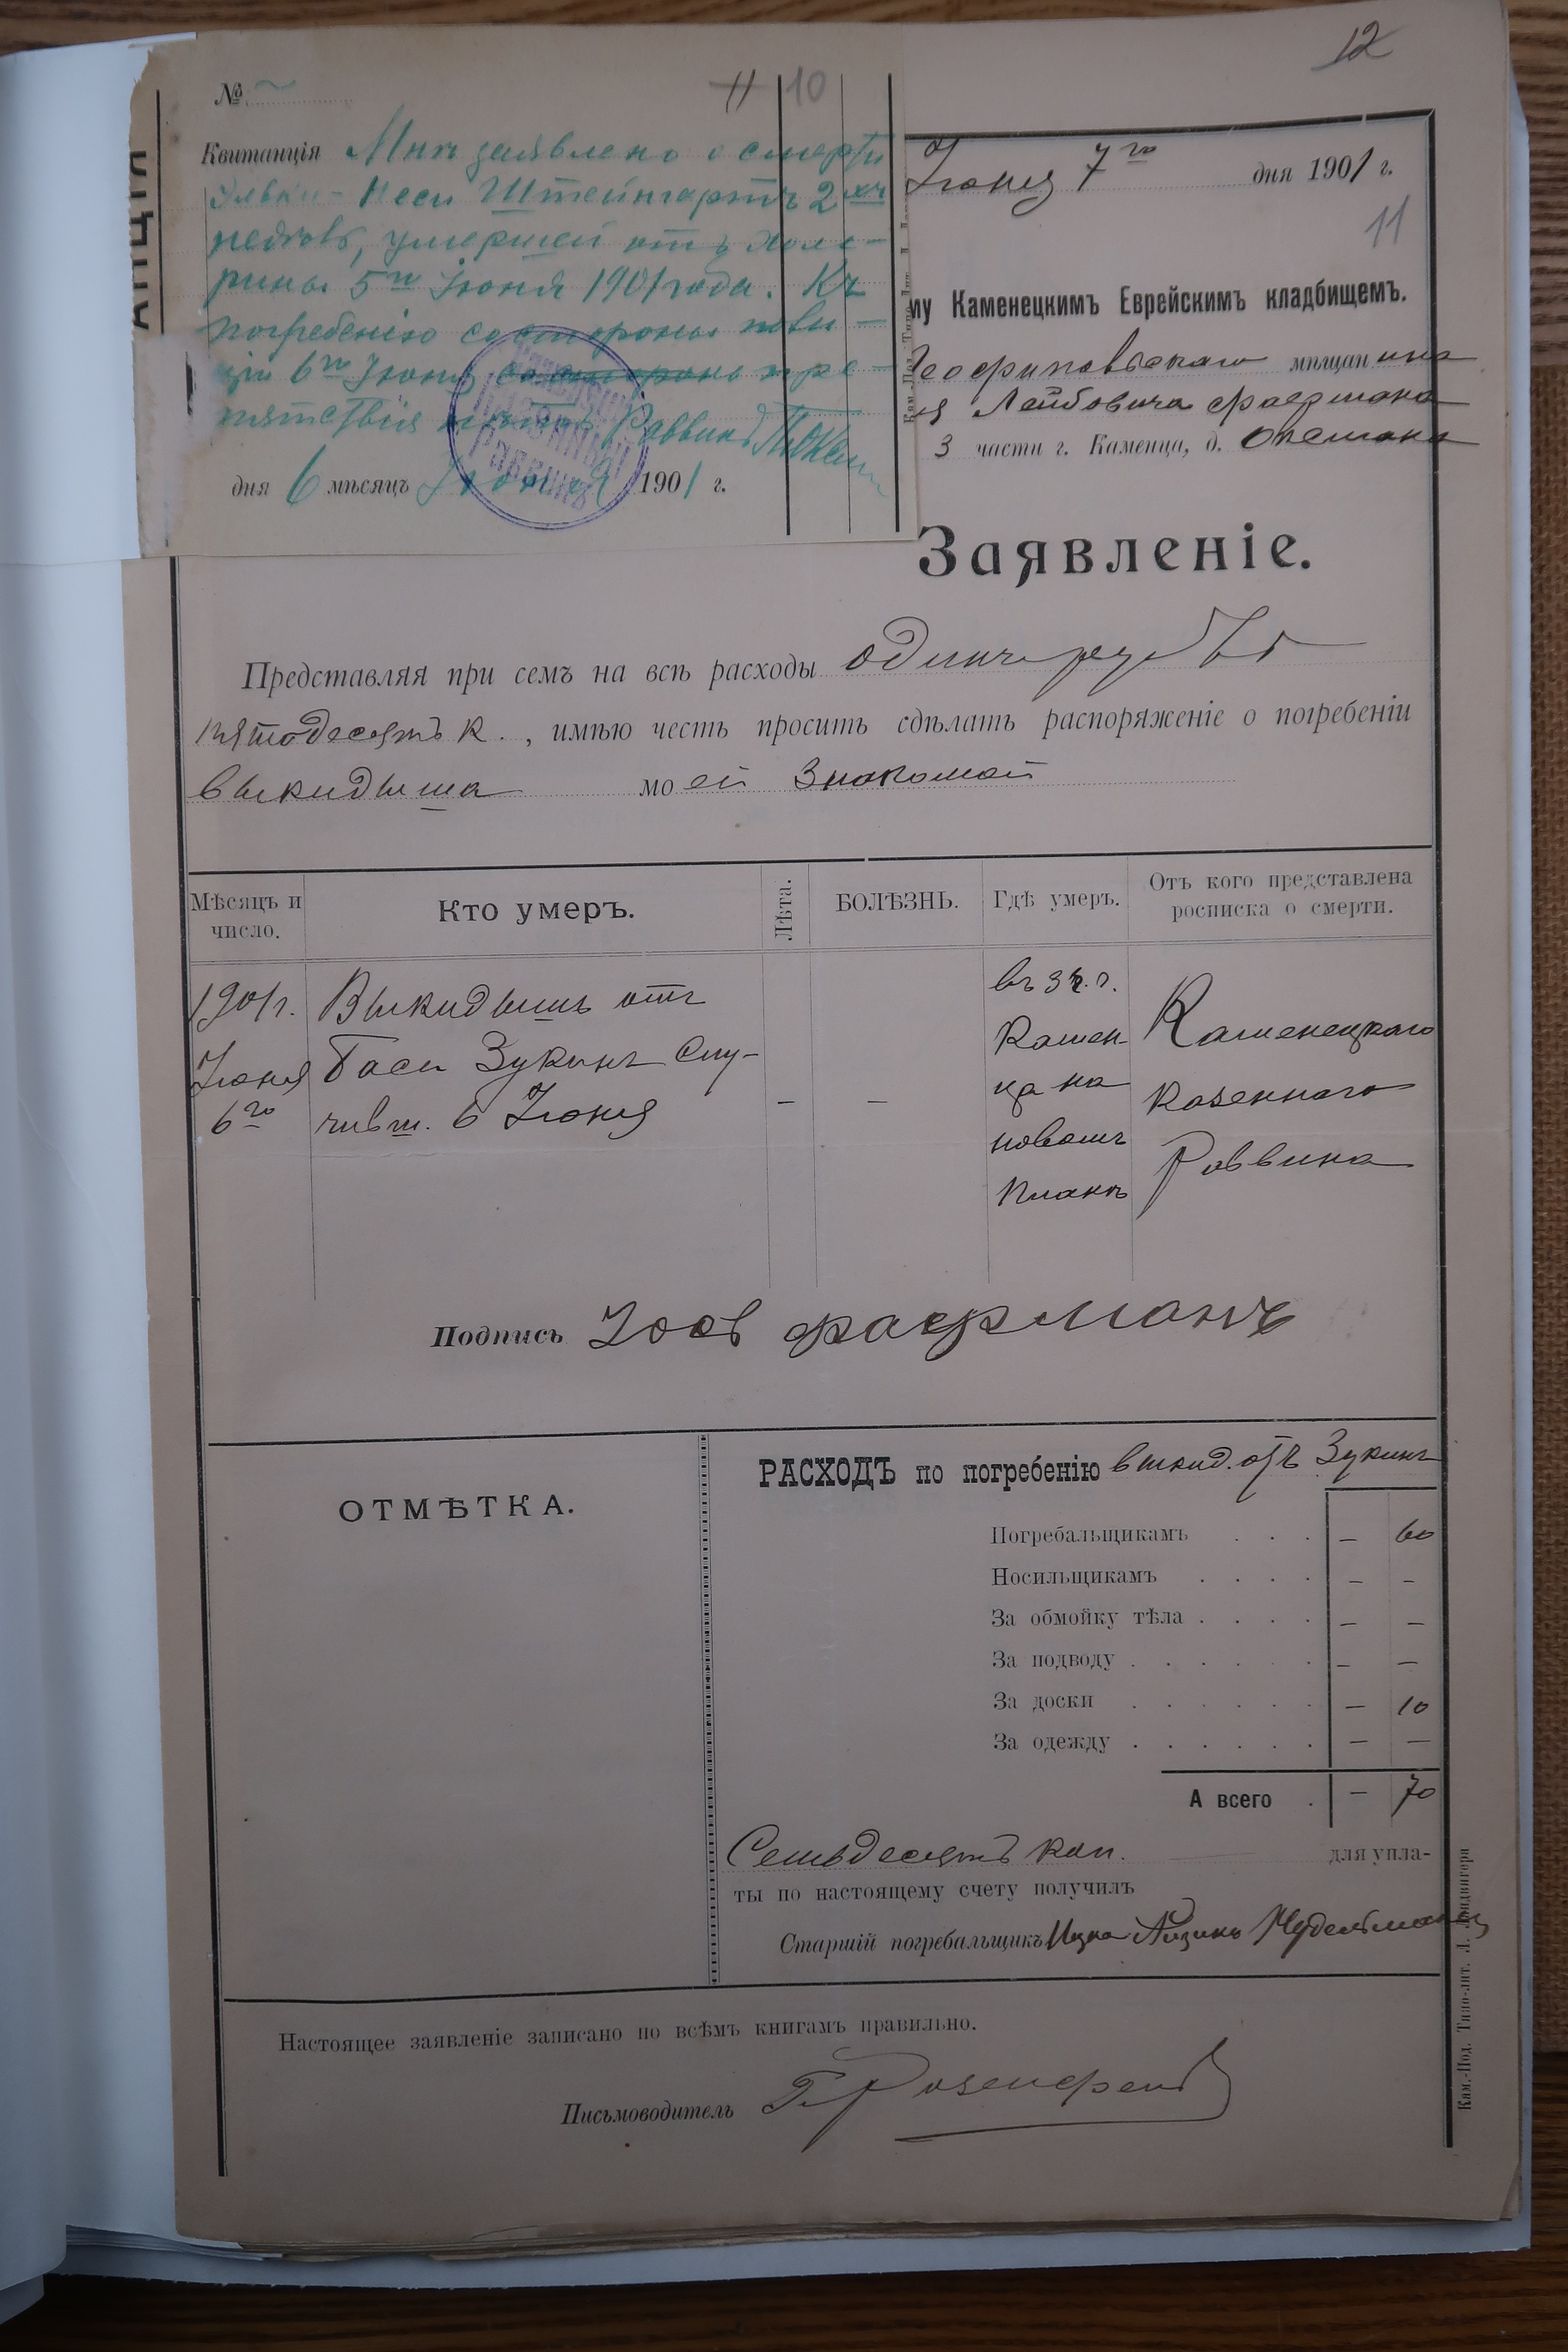 12
№
11 10
Квитанція Мнѣ заявлено о смерти
Песи Штейнгартъ 2хъ
умершей отъ холе-
рины 5го Іюня 1901 года. Къ
погребенію со стороны поли-
ціи 6го Іюня со стороны пре-
пятствія Раввинъ
дня 6 мѣсяцъ Іюня 1901 г.
Іюня 7го дня 1901 г.
11
му Каменецкимъ Еврейскимъ кладбищемъ.
мѣщанина
Лейбовича Фаермана
3 части г. Каменца, д.
Заявленіе.
Представляя при семъ на всѣ расходы одинъ рубль
пятьдесятъ к., имѣю честь просить сдѣлать распоряженіе о погребеніи
выкидыша моей знакомой
Мѣсяцъ и число.
Кто умеръ.
Лѣта.
БОЛѢЗНЬ.
Гдѣ умеръ.
Отъ кого представлена росписка о смерти.
1901 г. Іюня 6го
Выкидышъ отъ
Баси Зукинъ слу-
чивш. 6 Іюня
–
–
въ 3 ч. г.
Камен-
ца на
новомъ
планѣ
Каменецкаго
Казеннаго
Раввина
Подпись Фаерманъ
ОТМѢТКА.
РАСХОДЪ по погребенію выкид. отъ Зукинъ
Погребальщикамъ . . . – 60
Носильщикамъ . . . . – –
За обмойку тѣла . . . . – –
За подводу . . . . . . – –
За доски . . . . . . – 10
За одежду . . . . . . – –
А всего . – 70
Семьдесятъ коп. для упла-
ты по настоящему счету получилъ
Старшій погребальщикъ Ицко Айзикъ
Настоящее заявленіе записано по всѣмъ книгамъ правильно.
Письмоводитель Розенфельд
Кам.-Под. Типо-лит. Л. Ландвигера